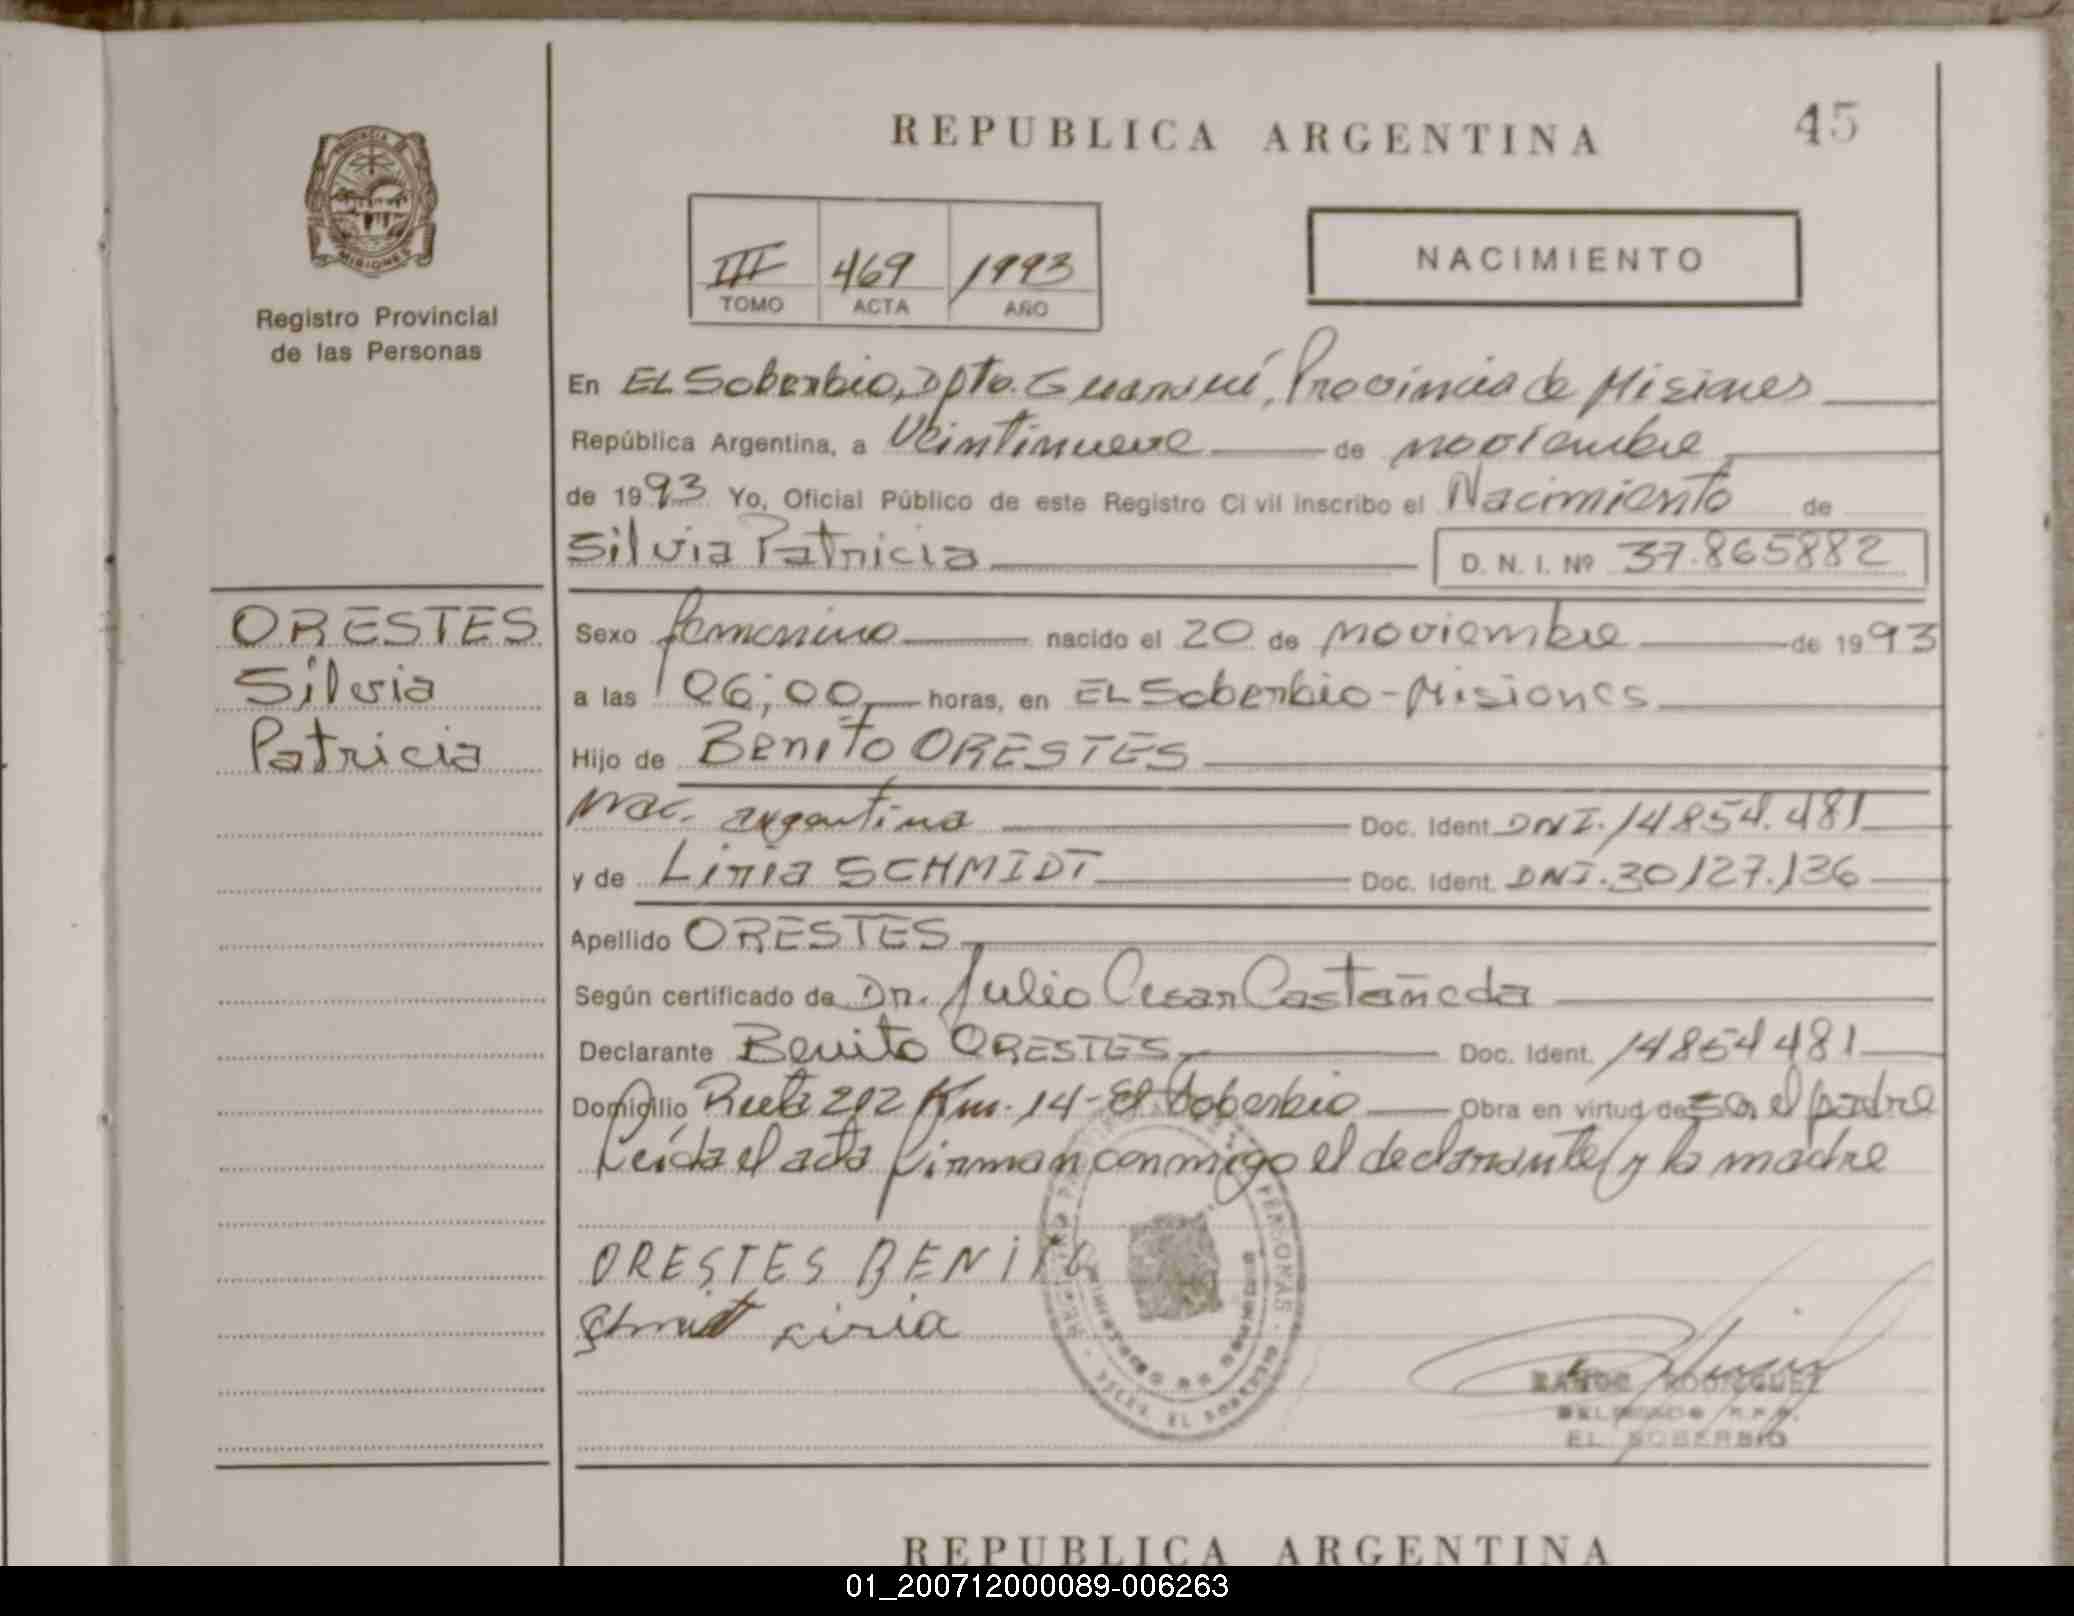 REPUBLICA ARGENTINA
45
PROVINCIA DE
MISIONES
Registro Provincial
de las Personas
III 469 1993
TOMO ACTA AÑO
NACIMIENTO
En EL Soberbio, Dpto. Guaraní, Provincia de Misiones
República Argentina, a Veintinueve de noviembre
de 1993 Yo, Oficial Público de este Registro Civil inscribo el Nacimiento de
Silvia Patricia D. N. I. Nº 37.865882
ORESTES
Silvia
Patricia
Sexo femenino nacido el 20 de noviembre de 1993
a las 06;00 horas, en EL Soberbio - Misiones
Hijo de Benito ORESTES
Nac. argentina Doc. Ident. DNI. 14854.481
y de Liria SCHMIDT Doc. Ident. DNI. 30127.136
Apellido ORESTES
Según certificado de Dr. Julio Cesar Castañeda
Declarante Benito ORESTES Doc. Ident. 14854481
Domicilio Ruta 212 Km. 14 - El Soberbio Obra en virtud de ser el padre
Leída el acta firman conmigo el declarante y la madre
ORESTES BENITO
liria
RAMON RODRIGUEZ
DELEGADO R.P.P.
EL SOBERBIO
REPUBLICA ARGENTINA
01_200712000089-006263